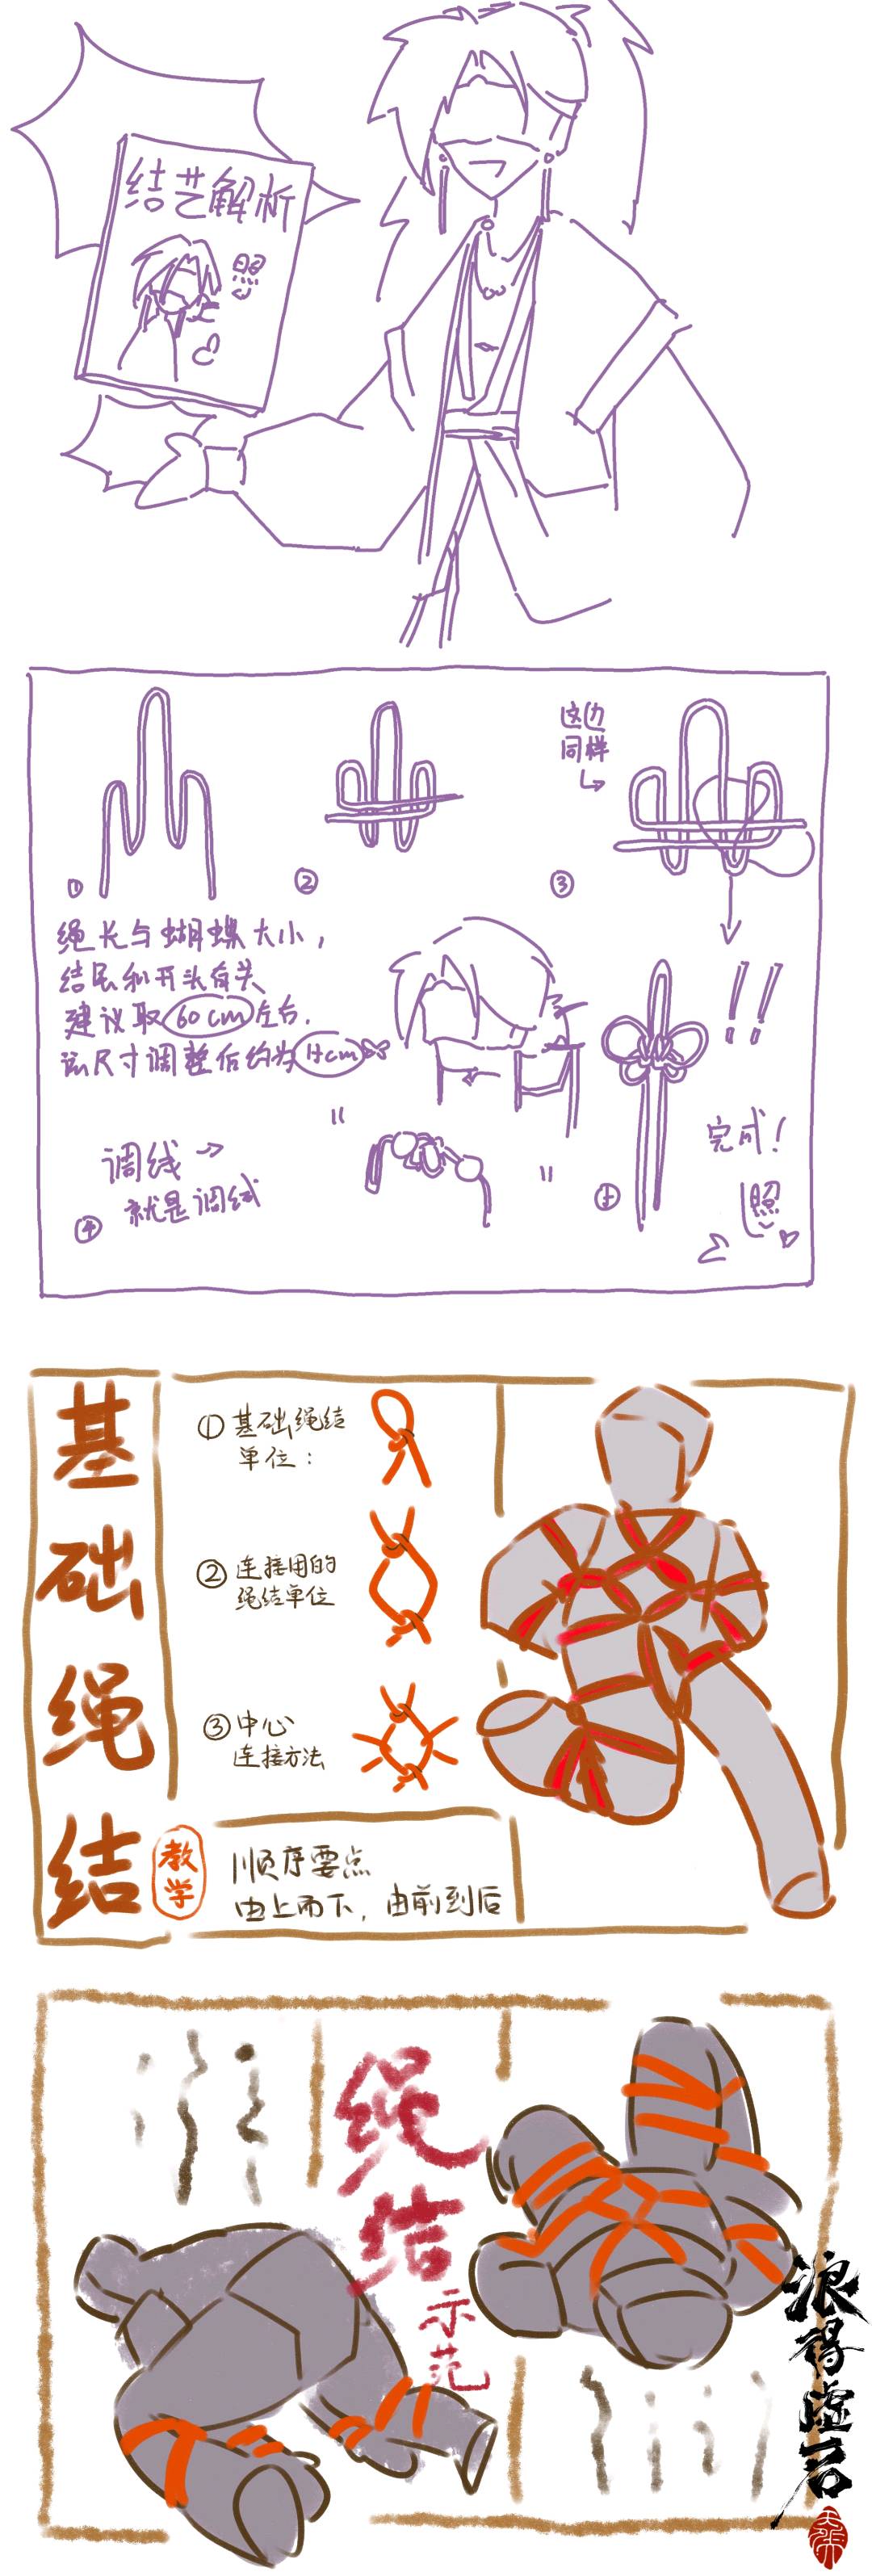 结艺解析
照
这边
同样
①
②
③
绳长与蝴蝶大小，
结尾和开头有关
建议取60cm左右.
该尺寸调整后约为4cm
!!
调线→
就是调线
④
完成!
照
⑤
基础绳结
教学
①基础绳结
单位：
②连接用的
绳结单位
③中心
连接方法
顺序要点
由上而下，由前到后
绳结
示范
浪得虚名